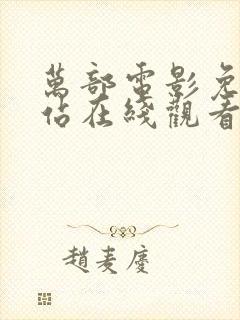 萬部電影免
佔在綫觀看
趙麦慶